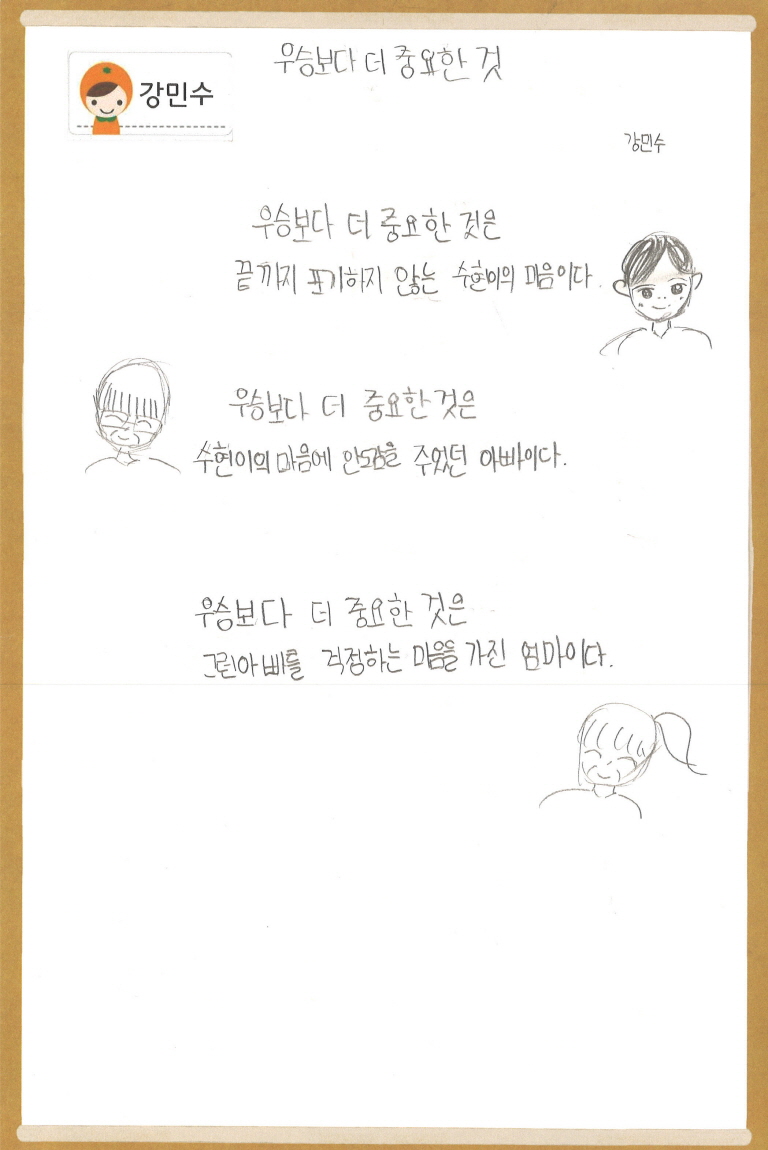 강민수
우승보다 더 중요한 것
강민수
우승보다 더 중요한 것은
끝까지 포기하지 않는 수현이의 마음이다.
우승보다 더 중요한 것은
수현이의 마음에 안도감을 주었던 아빠이다.
우승보다 더 중요한 것은
그런아빠를 걱정하는 마음을 가진 엄마이다.